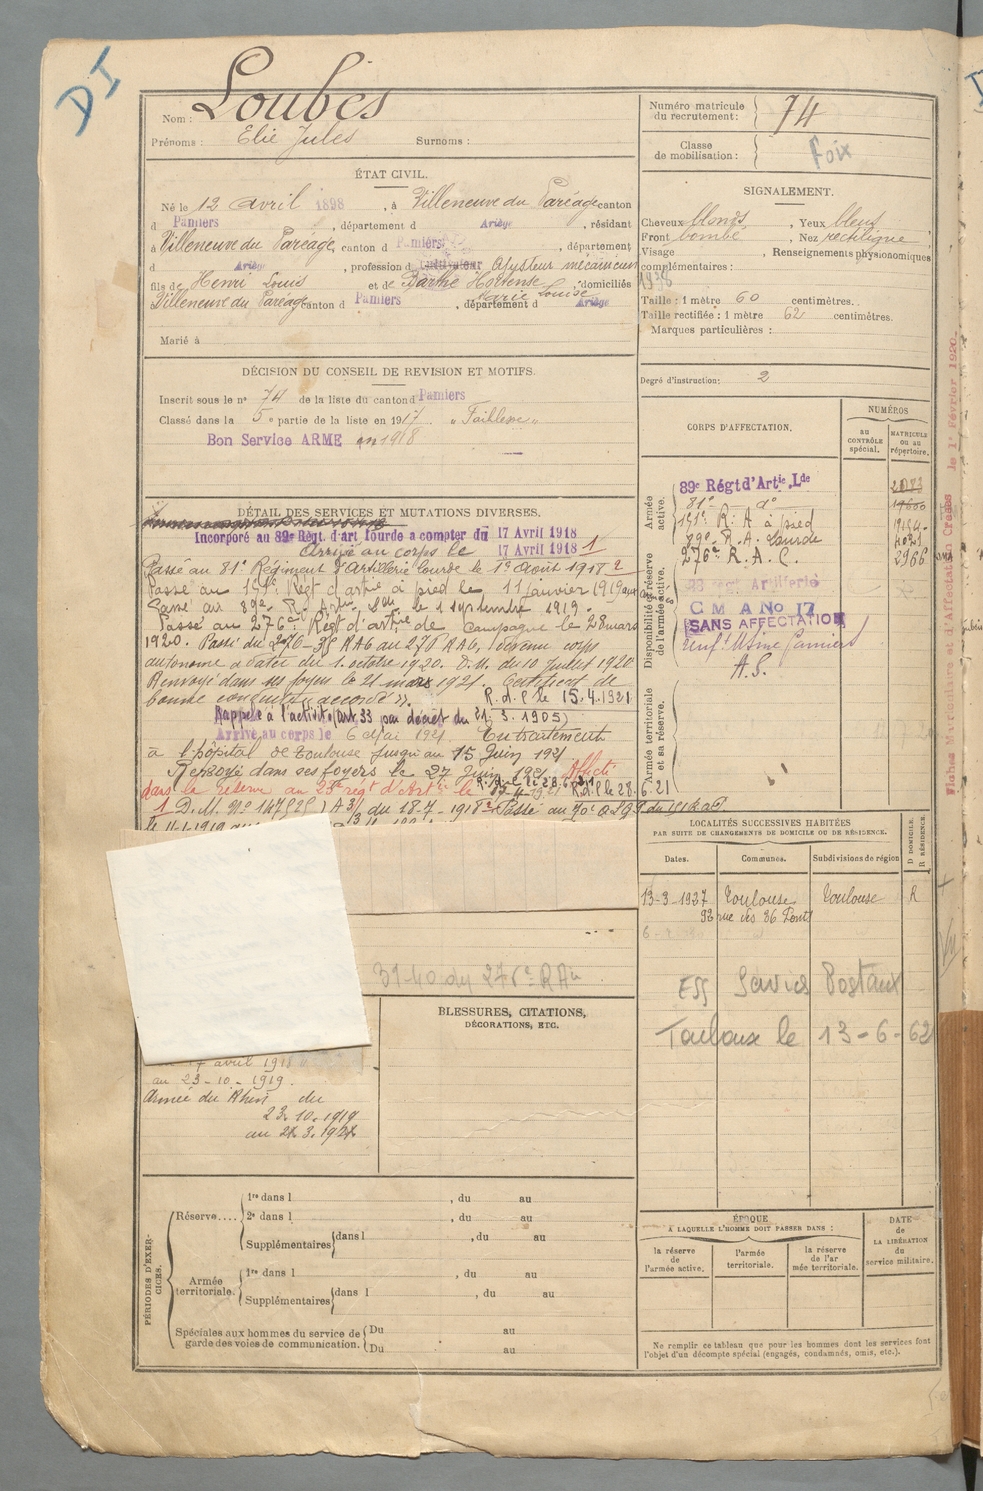 DI
Nom : Loubes
Prénoms : Elie Jules Surnoms :
ÉTAT CIVIL.
Né le 12 avril 1898, à Villeneuve du Paréage canton
d Pamiers, département d Ariège, résidant
à Villeneuve du Paréage, canton d Pamiers, département
d Ariège, profession d cultivateur Ajusteur mécanicien
fils de Henri Louis et de Barthe Hortense Marie Louise, domiciliés
à Villeneuve du Paréage canton d Pamiers, département d Ariège
Marié à
DÉCISION DU CONSEIL DE REVISION ET MOTIFS.
Inscrit sous le n° 74 de la liste du canton d Pamiers
Classé dans la 5e partie de la liste en 1917 "Faiblesse"
Bon Service ARMÉ en 1918
DÉTAIL DES SERVICES ET MUTATIONS DIVERSES.
Incorporé au 89e Régt. d'art lourde a compter du 17 Avril 1918
Arrivé au corps le 17 Avril 1918 1
Passé au 81e Régiment d'Artillerie lourde le 1er Août 1918 2
Passé au 151e Régt d'artie à pied le 11 janvier 1919
Passé au 89e R. Artie Lde le 1 septembre 1919.
Passé au 276e Régt d'artie de campagne le 28 mars
1920. Passé du 276 au 276 RAC, devenu corps
autonome à dater du 1. octobre 1920. D.M. du 10 Juillet 1920
Renvoyé dans ses foyers le 21 mars 1921. Certificat de
bonne conduite "accordé". R.d.P. le 15.4.1921
Rappelé à l'activité (art. 33 par décret du 21.3.1905)
Arrivé au corps le 6 Mai 1921. En traitement
à l'hôpital de Toulouse jusqu'au 15 Juin 1921
Renvoyé dans ses foyers le 27 Juin 1921 Affecté
dans la réserve au 23e régt d'Artie le R.d.P. le 28.6.21
1 D.M. N° 14752 du 18-7-1918 2 Passé au
31-40 du 276e RA
BLESSURES, CITATIONS,
DÉCORATIONS, ETC.
17 avril 1918
au 23-10-1919.
Armée du Rhin du
23.10.1919
RÉSERVE....
1re dans l , du au
2e dans l , du au
Supplémentaires dans l , du au
PÉRIODES D'EXERCICES.
Armée territoriale.
1re dans l , du au
Supplémentaires dans l , du au
Spéciales aux hommes du service de garde des voies de communication.
Du au
Du au
Numéro matricule du recrutement : 74
Classe de mobilisation : Foix
SIGNALEMENT.
Cheveux blonds, Yeux bleus
Front bombé, Nez rectiligne
Visage , Renseignements physionomiques
complémentaires :
1938
Taille : 1 mètre 60 centimètres.
Taille rectifiée : 1 mètre 62 centimètres.
Marques particulières :
Degré d'instruction : 2
CORPS D'AFFECTATION.
NUMÉROS
au CONTRÔLE spécial.
MATRICULE ou au répertoire.
Armée active.
89e Régt d'Artie Lde
81e do 19600
151e R. A à pied
89e R. A. Lourde
276e R. A. C. 2966
Disponibilité et réserve de l'armée active.
régt Artillerie
C M A No 17
SANS AFFECTATION
A.S.
Armée territoriale et sa réserve.
LOCALITÉS SUCCESSIVES HABITÉES
PAR SUITE DE CHANGEMENTS DE DOMICILE OU DE RÉSIDENCE.
Dates. Communes. Subdivisions de région
D DOMICILE. R RÉSIDENCE.
13-3-1927 Toulouse Toulouse R
92 rue des 36 Ponts
Ess Service Postaux
Toulouse le 13-6-62
ÉPOQUE
À LAQUELLE L'HOMME DOIT PASSER DANS :
la réserve de l'armée active.
l'armée territoriale.
la réserve de l'armée territoriale.
DATE de LA LIBÉRATION du service militaire.
Ne remplir ce tableau que pour les hommes dont les services font
l'objet d'un décompte spécial (engagés, condamnés, omis, etc.).
Fiches Matriculaire et d'Affectation Créées le 1er Février 1920.